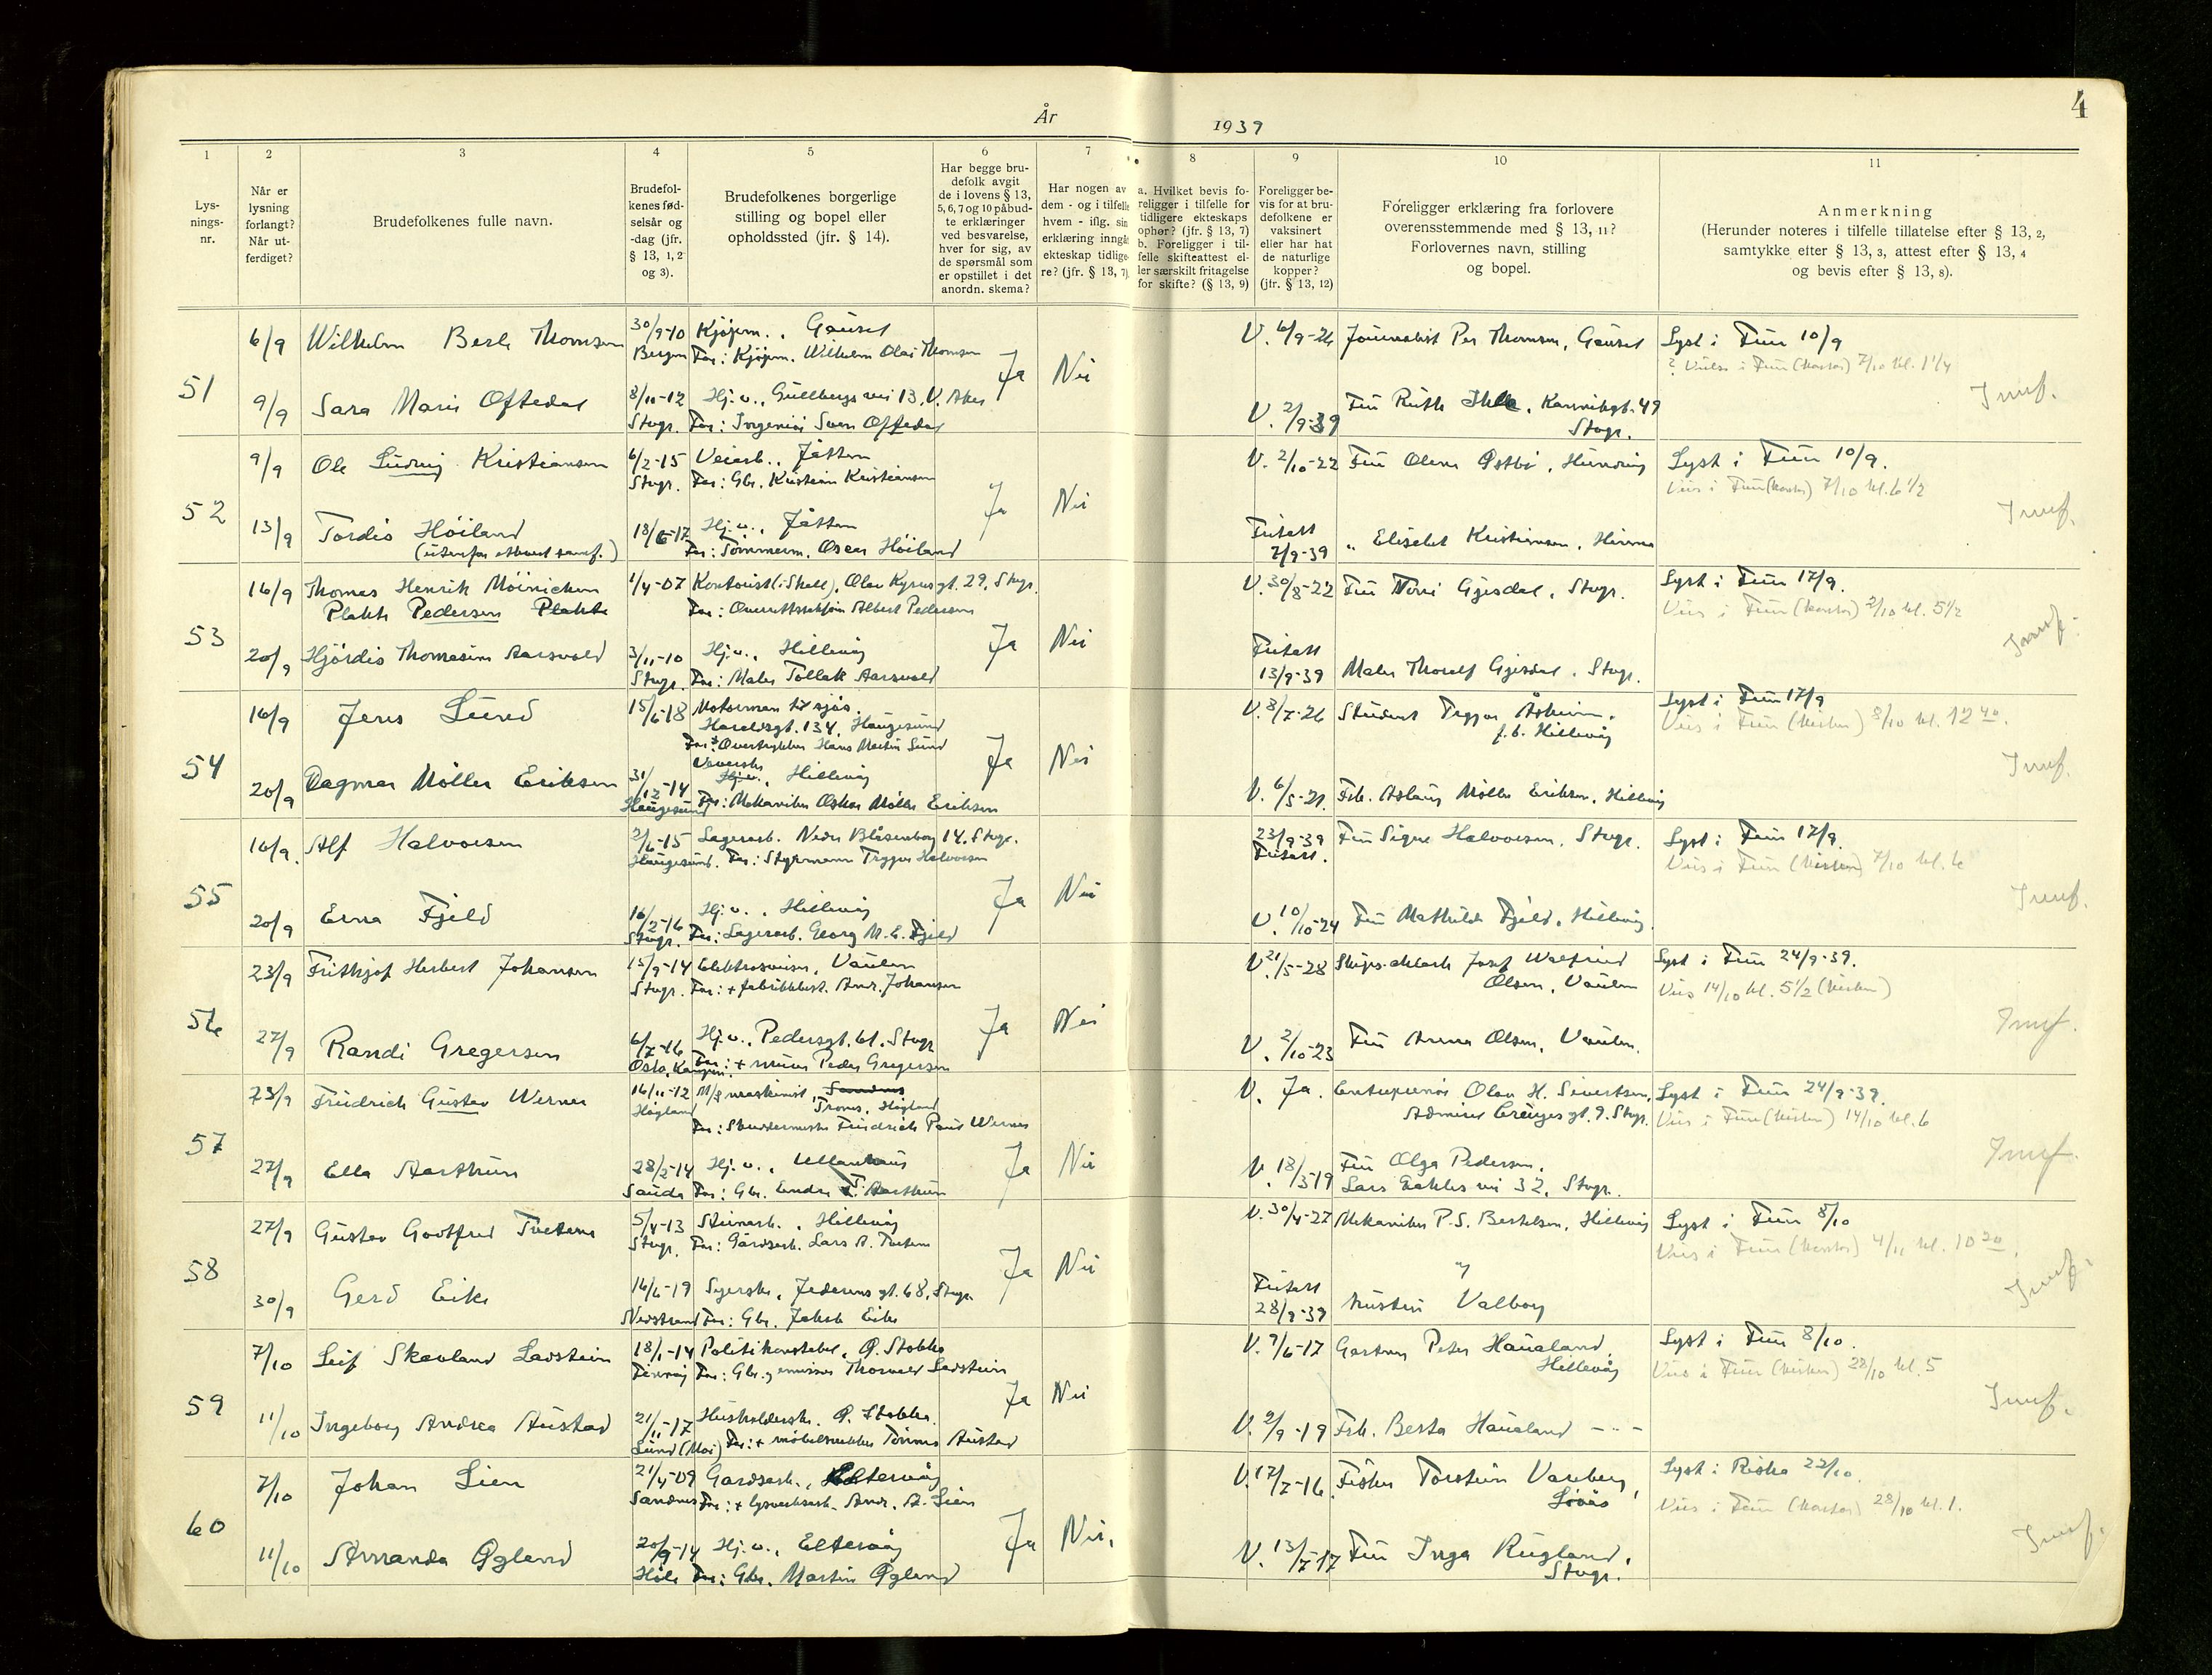 År 1939
4
1
2
3
4
5
6
7
8
9
10
11
Lys-
nings-
nr.
Når er
lysning
forlangt?
Når ut-
ferdiget?
Brudefolkenes fulle navn.
Brudefol-
kenes fød-
selsår og
-dag (jfr.
§ 13, 1, 2
og 3).
Brudefolkenes borgerlige
stilling og bopel eller
opholdssted (jfr. § 14).
Har begge bru-
defolk avgit
de i lovens § 13,
5, 6, 7 og 10 påbud-
te erklæringer
ved besvarelse,
hver for sig, av
de spørsmål som
er opstillet i det
anordn. skema?
Har nogen av
dem - og i tilfelle
hvem - iflg. sin
erklæring inngåt
ekteskap tidlige-
re? (jfr. § 13, 7)
a. Hvilket bevis fo-
religger i tilfelle for
tidligere ekteskaps
ophør? (jfr. § 13, 7)
b. Foreligger i til-
felle skifteattest el-
ler særskilt fritagelse
for skifte? (§ 13, 9)
Foreligger be-
vis for at bru-
defolkene er
vaksinert
eller har hat
de naturlige
kopper?
(jfr. § 13, 12)
Foreligger erklæring fra forlovere
overensstemmende med § 13, 11?
Forlovernes navn, stilling
og bopel.
Anmerkning
(Herunder noteres i tilfelle tillatelse efter § 13, 2,
samtykke efter § 13, 3, attest efter § 13, 4
og bevis efter § 13, 8).
51
6/9 Wilhelm Thomsen 30/9-10 Kjøpm., Gausel V. 6/9-26 Journalist Per Thomsen, Gausel Lyst i Frue 10/9
Bergen Far: Kjøpm. Wilhelm Olai Thomsen Ja Nei
9/9 Sara Marie Oftedal 8/11-12 Hj.v., Gullbergs vei 13, V. Aker V. 2/9-39 Fru Ruth Kannikgt. 49
Stvgr. Far: Ingeniør Sven Oftedal Stvgr.
52
9/9 Ole Ludvig Kristiansen 6/2-15 Veiarb., Jåtten V. 2/10-22 Fru Olene Østbø, Lyst i Frue 10/9.
Stvgr. Far: Gbr. Kristian Kristiansen Ja Nei Vies i Frue (kontor) 7/10 kl. 6 1/2
13/9 Tordis Høiland 18/6-17 Hj.v., Jåtten Fritatt 7/9-39 " Elisabet Kristiansen, Hinna
(utenfor ethvert samf.) Far: Tømmerm. Oscar Høiland
53
16/9 Thomas Henrik Møinichen 1/4-07 Kontorist (i Shell), Olav Kyrres gt. 29, Stvgr. V. 30/8-22 Fru Gjesdal, Stvgr. Lyst i Frue 17/9.
Plahte Pedersen Plahte Far: Albert Pedersen Vies i Frue (kontor) 2/10 kl. 5 1/2
Ja Nei
20/9 Hjördis Thomasine Aarsvold 3/11-10 Hj.v., Hillevåg Fritatt 13/9-39 Maler Thoralf Gjesdal, Stvgr.
Stvgr. Far: Maler Tollak Aarsvold
54
16/9 Jens Lund 15/6-18 Motormann til sjøs. V. 8/7-26 Student Trygve Åsheim, Lyst i Frue 17/9
Haraldsgt. 134, Haugesund f.b. Hillevåg Vies i Frue (kirken) 8/10 kl. 12 40.
Far: Hans Martin Lund Ja Nei
20/9 Dagmar Møller Eriksen 31/12-14 Hj.v., Hillevåg V. 6/5-21. Frk. Aslaug Møller Eriksen, Hillevåg
Haugesund Far: Mekaniker Oskar Møller Eriksen
55
16/9. Alf Halvorsen 2/6-15 Lagerarb. Nedre Blåsenborg 14, Stvgr. 23/9-39 Fru Signe Halvorsen, Stvgr. Lyst i Frue 17/9.
Haugesund. Far: Styrmann Trygve Halvorsen Fritatt. Vies i Frue (kirken) 7/10 kl. 6
Ja Nei
20/9 Erna Fjeld 16/2-16 Hj.v., Hillevåg V. 10/10-24 Fru Mathilde Fjeld, Hillevåg.
Stvgr. Far: Lagerarb. Georg M. E. Fjeld
56
23/9 Frithjof Herbert Johansen 15/9-14 Elektrosveiser, Vaulen V. 21/5-28 Josef Walfried Lyst i Frue 24/9-39.
Stvgr. Far: + fabrikkbest. Andr. Johansen Olsen, Vaulen Vies 14/10 kl. 5 1/2 (kirken)
Ja Nei
27/9 Randi Gregersen 6/7-16 Hj.v., Pedersgt. 61, Stvgr V. 2/10-23 Fru Anna Olsen, Vaulen.
Oslo, Far: + murer Peder Gregersen
57
23/9 Friedrich Gustav Werner 16/11-12 M/S maskinist, Sandnes V. Ja. Entreprenør Olav H. Sivertsen, Lyst i Frue 24/9-39.
Høgland Tromsø, Høgland Admiral Cruys gt. 9. Stvgr. Vies i Frue (kirken) 14/10 kl. 6
Far: Skreddermester Friedrich Paul Werner
Ja Nei
27/9 Ella Aarthun 28/2-14 Hj.v., Ullanhaug V. 18/3-19 Fru Olga Pedersen,
Sauda Far: Gbr. Endre Aarthun Lars Eskeles vei 32, Stvgr.
58
27/9 Gustav Gootfred Tveteraa 5/4-13 Steinarb., Hillevåg V. 30/4-27 Mekaniker P. S. Bertelsen, Hillevåg Lyst i Frue 8/10
Stvgr. Far: Gårdsarb. Lars A. Vies i Frue (kontor) 4/11 kl. 10 30.
Ja Nei
30/9 Gerd Eike 16/6-19 Syerske, Jederens gt. 68, Stvgr. Fritatt 28/9-39 Kristine Valborg "
Nedstrand Far: Gbr. Jakob Eike
59
7/10 Leif Skavland Ladstein 18/1-14 Politikonstabel, G. Stokka V. 9/6-17 Gartner Peter Haualand, Lyst i Frue 8/10.
Finnøy Far: Gbr. og emissær Thorvald Ladstein Hillevåg Vies i Frue (kirken) 28/10 kl. 5
Ja Nei
11/10 Ingeborg Andrea Austad 21/11-17 Husholderske. G. Stokka. V. 2/9-19 Frk. Berta Haualand – " –
Lund (Moi) Far: + møbelsnekker Tønnes Austad
60
7/10 Johan Lien 21/4-09 Gardsarb., Eltervåg V. 17/7-16 Fisker Torstein Vareberg, Lyst i Riska 22/10.
Sandnes Far: + lysverksarb. Andr. A. Lien Vies i Frue (kontor) 28/10 kl. 1.
Ja Nei.
11/10 Amanda Øgland 20/9-14 Hj.v., Eltervåg V. 13/7-17 Fru Inga Rugland,
Høle Far: Gbr. Martin Øgland Stvgr.